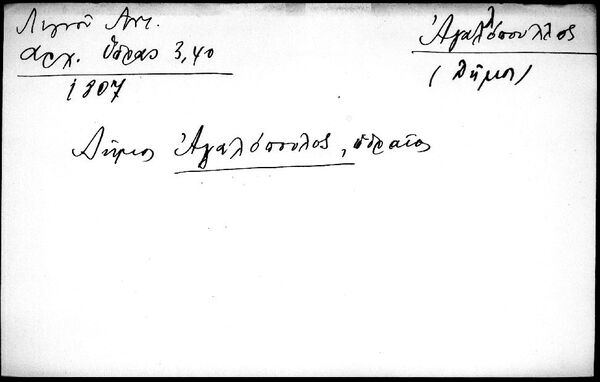 Λιγνοῦ Αντ.
αρχ. Ὕδρας 3,40
1807
Ἀγαλλόπουλλος
(Δῆμος)
Δῆμος Ἀγαλόπουλος, ὑδραῖος